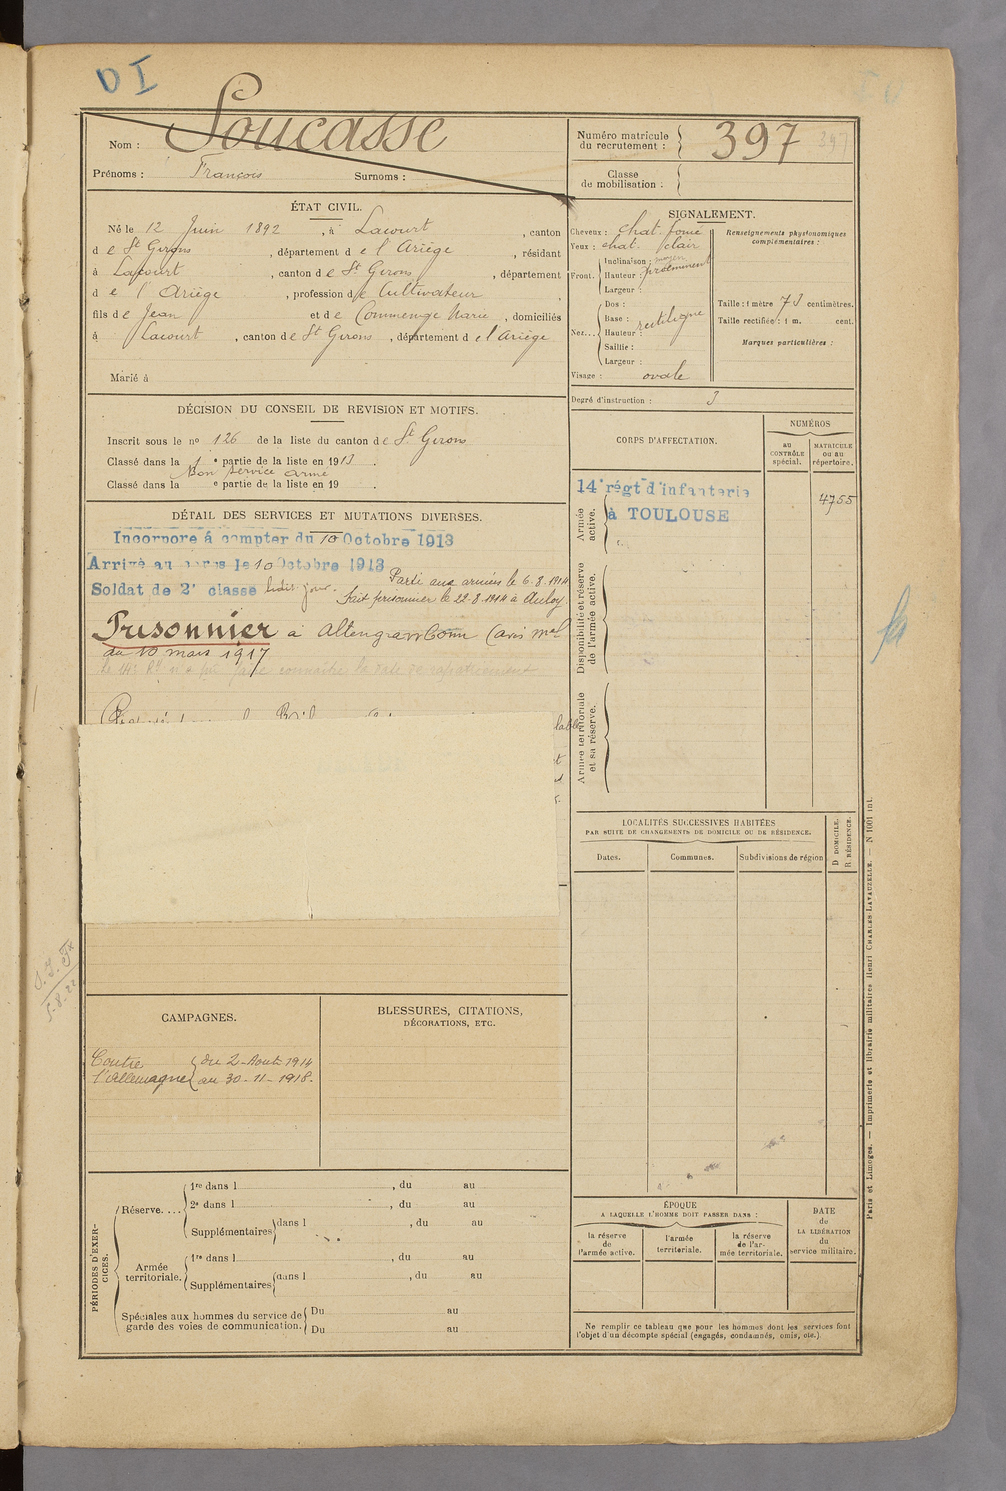 DI
Nom : Soucasse
Prénoms : François Surnoms :
Numéro matricule du recrutement : 397 397
Classe de mobilisation :
ÉTAT CIVIL.
Né le 12 Juin 1892, à Lacourt, canton
d e St Girons, département d e l'Ariège, résidant
à Lacourt, canton d e St Girons, département
d e l'Ariège, profession d e Cultivateur
fils d e Jean et d e Commenge Marie, domiciliés
à Lacourt, canton d e St Girons, département d e l'Ariège
Marié à
SIGNALEMENT.
Cheveux : chat. foncé
Yeux : chat. clair
Front. Inclinaison : moyen
Hauteur : proéminent
Largeur :
Nez... Dos :
Base : rectiligne
Hauteur :
Saillie :
Largeur :
Visage : ovale
Renseignements physionomiques complémentaires :
Taille : 1 mètre 73 centimètres.
Taille rectifiée : 1 m. cent.
Marques particulières :
Degré d'instruction : 3
DÉCISION DU CONSEIL DE REVISION ET MOTIFS.
Inscrit sous le no 126 de la liste du canton d e St Girons
Classé dans la 1e partie de la liste en 1913.
Bon service armé
Classé dans la e partie de la liste en 19 .
DÉTAIL DES SERVICES ET MUTATIONS DIVERSES.
Incorporé à compter du 10 Octobre 1913
Arrivé au corps le 10 Octobre 1913
Soldat de 2e classe ledit jour. Parti aux armées le 6.8.1914
Fait prisonnier le 22.8.1914 à
Prisonnier à (avis mel
du 10 mars 1917
le 14e RI n'a pu faire connaître la date de rapatriement
CORPS D'AFFECTATION.
NUMÉROS
au CONTRÔLE spécial.
MATRICULE ou au répertoire.
Armée active.
14e régt d'infanterie
à TOULOUSE
4755
Disponibilité et réserve de l'armée active.
Armée territoriale et sa réserve.
LOCALITÉS SUCCESSIVES HABITÉES
PAR SUITE DE CHANGEMENTS DE DOMICILE OU DE RÉSIDENCE.
Dates.
Communes.
Subdivisions de région
D DOMICILE.
R RÉSIDENCE.
CAMPAGNES.
Contre l'Allemagne
du 2 - Août 1914
au 30 - 11 - 1918.
BLESSURES, CITATIONS,
DÉCORATIONS, ETC.
5-8-22
PÉRIODES D'EXERCICES.
Réserve....
1re dans l , du au
2e dans l , du au
Supplémentaires dans l , du au
Armée territoriale.
1re dans l , du au
Supplémentaires dans l , du au
Spéciales aux hommes du service de garde des voies de communication.
Du au
Du au
ÉPOQUE
A LAQUELLE L'HOMME DOIT PASSER DANS :
la réserve de l'armée active.
l'armée territoriale.
la réserve de l'armée territoriale.
DATE de LA LIBÉRATION du service militaire.
Ne remplir ce tableau que pour les hommes dont les services font
l'objet d'un décompte spécial (engagés, condamnés, omis, etc.).
Paris et Limoges. — Imprimerie et librairie militaires Henri CHARLES-LAVAUZELLE. — N 1001 int.